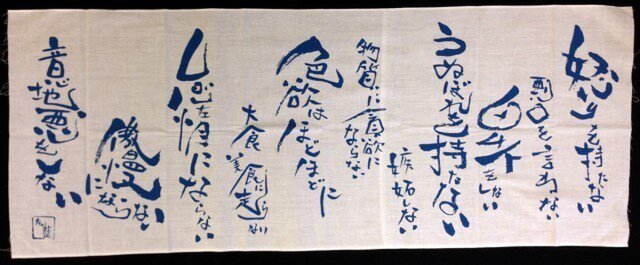 怒りを持たない
悪口を言わない
卑下をしない
うぬぼれを持たない
嫉妬しない
物質に貪欲に
ならない
色欲は
ほどほどに
大食
美食に走らない
怠惰にならない
傲慢
にならない
意地悪をしない